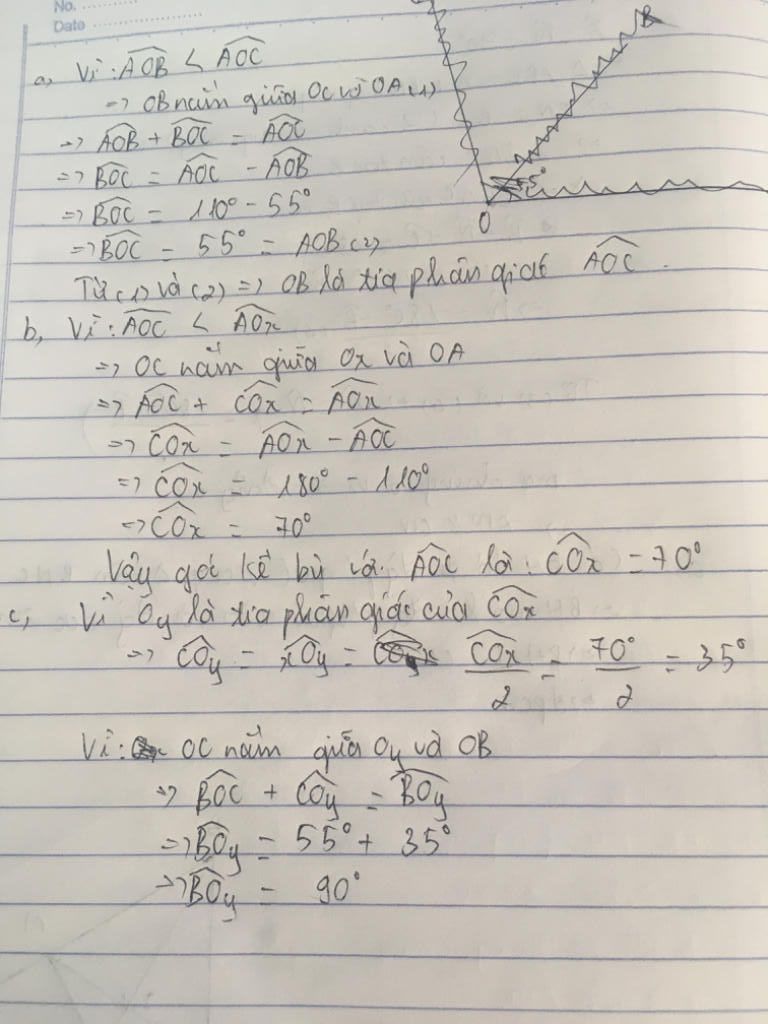 No.
Date
a, Vì: AOB < AOC
B
=> OB nằm giữa OC và OA (1)
=> AOB + BOC = AOC
=> BOC = AOC - AOB
5°
=> BOC = 110° - 55°
O
=> BOC = 55° = AOB (2)
Từ (1) và (2) => OB là tia phân giác AOC.
b, Vì: AOC < AOx
=> OC nằm giữa Ox và OA
=> AOC + COx = AOx
=> COx = AOx - AOC
=> COx = 180° - 110°
=> COx = 70°
Vậy góc kề bù với AOC là: COx = 70°
c, Vì Oy là tia phân giác của COx
=> COy = xOy = COx/2 = 70°/2 = 35°
Vì: OC nằm giữa Oy và OB
=> BOC + COy = BOy
=> BOy = 55° + 35°
=> BOy = 90°